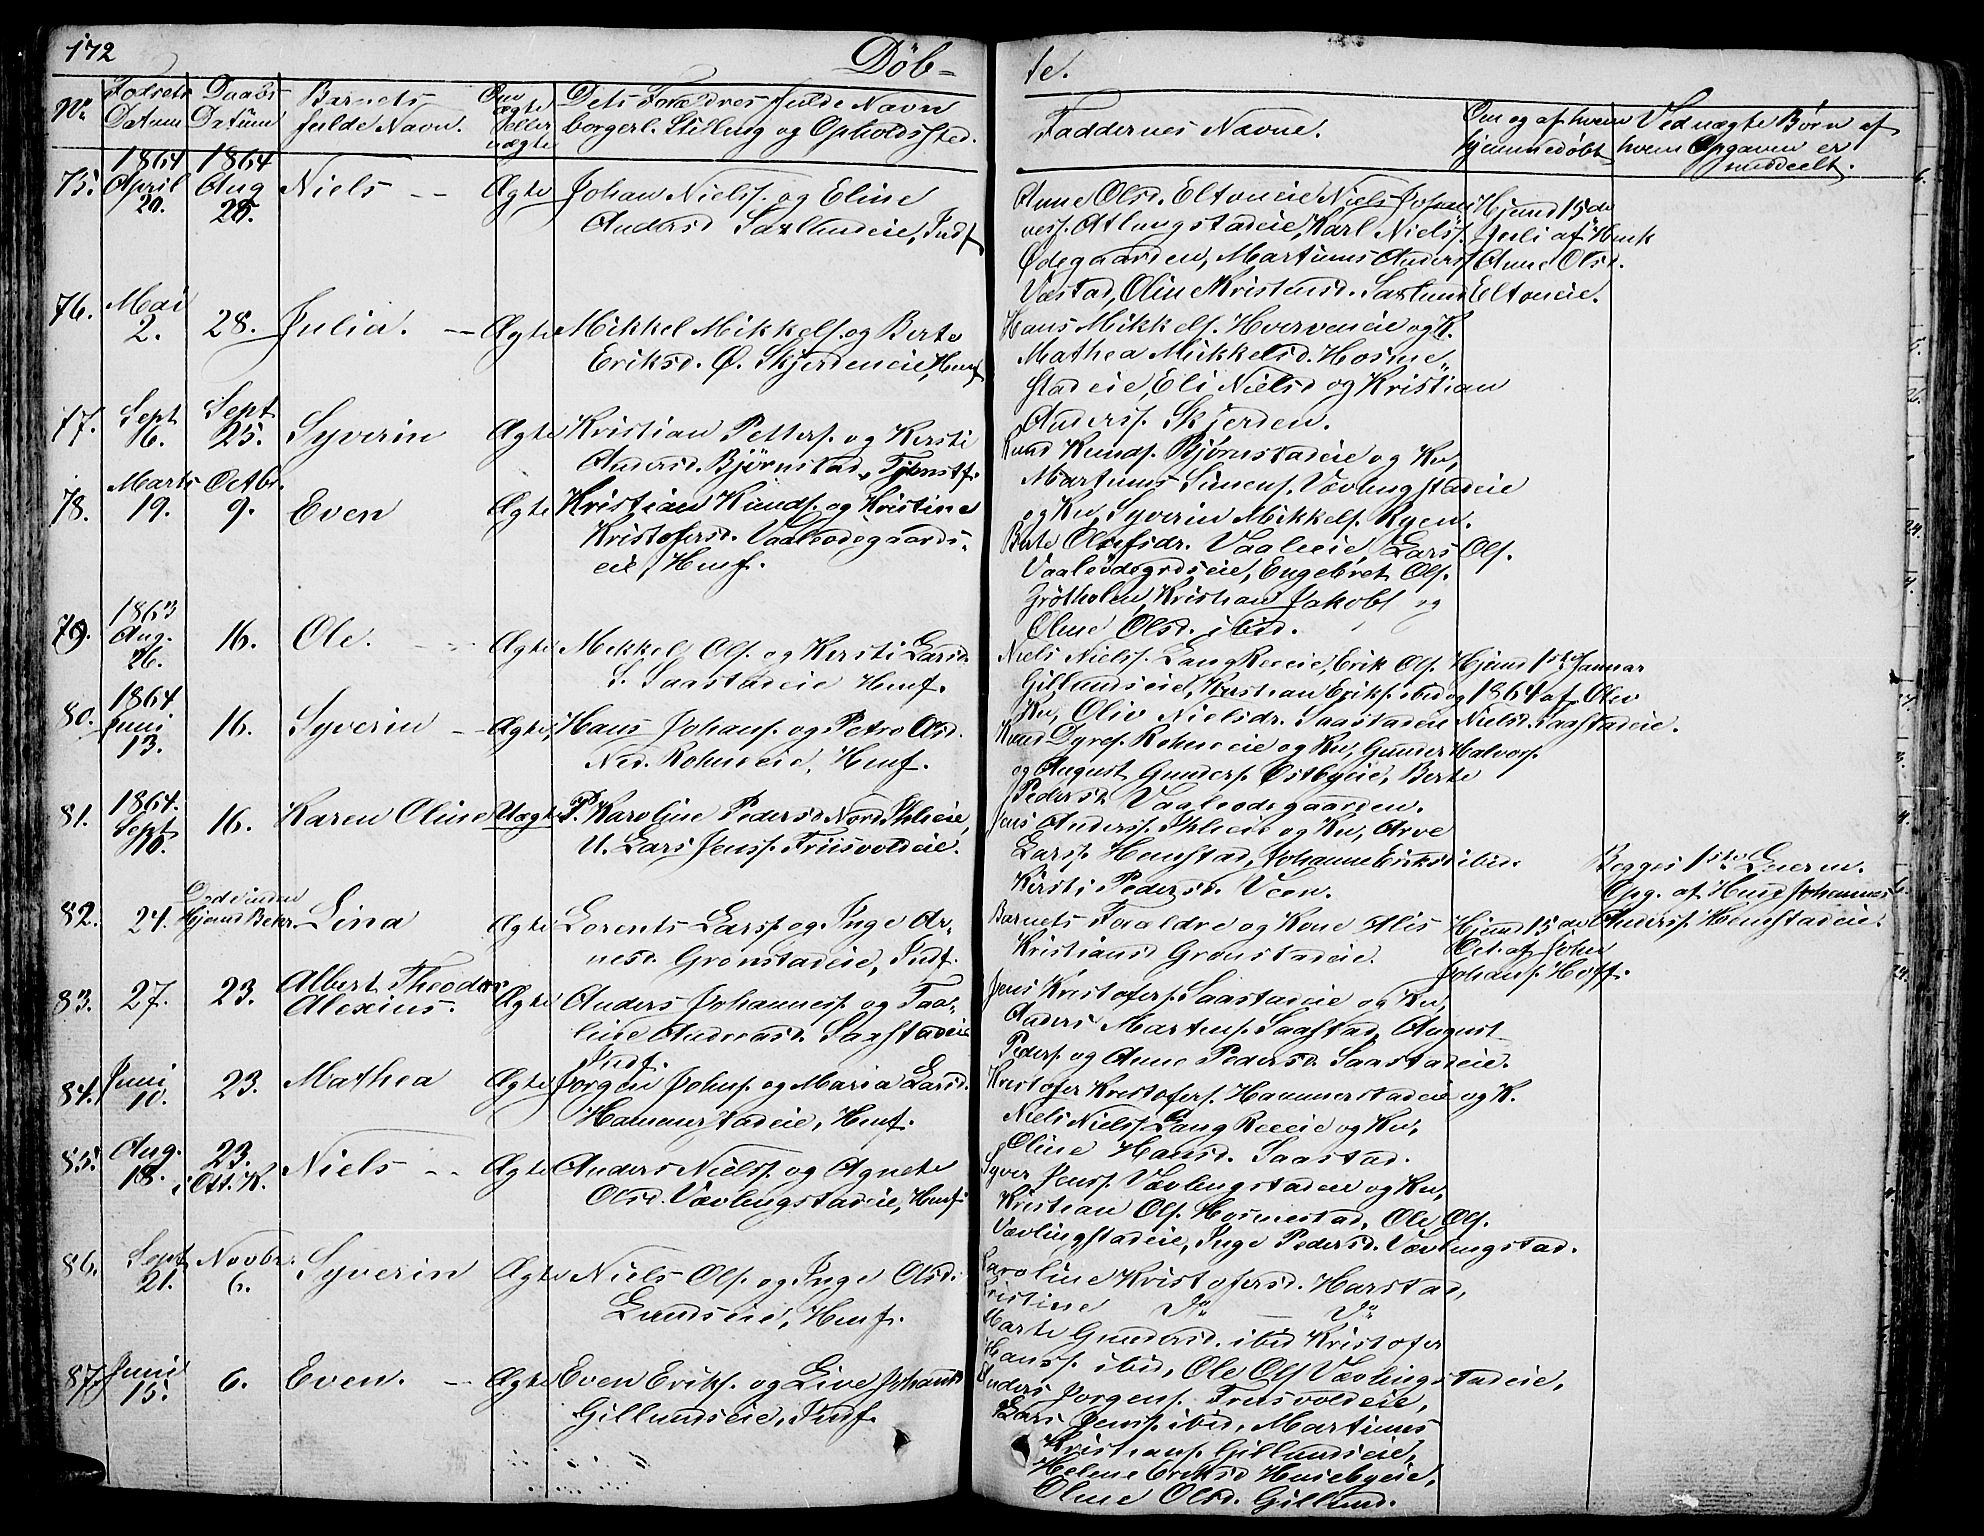 172
Döb-
te.
No.
Fødsels Datum
Daabs Datum
Barnets fulde Navn.
Om ægte eller uægte
Dets Forældres fulde Navn
borgerl. Stilling og Opholdssted.
Faddernes Navne.
Om og af hvem hjemmedøbt
Ved uægte Børn af
hvem Opgaven er
meddeelt.
75. 1864 April 20. 1864 Aug 28. Niels -- Ægte Johan Nielss. og Eline
Andersd Saxlundeie, Indf
Anne Olsd. Eltoneie Niels Johan-
ness. Atlungstadeie, Karl Nielss.
Ødegaarden, Martinus Anderss
Væstad, Oline Kristensd. Saxlund
Hjemd 15de
Juli af
Anne Olsd.
Eltoneie.
76. Mai 2. 28. Julia. -- Ægte Mikkel Mikkels. og Berte
Eriksd. Ø. Skjerdeneie, Huusf
Hans Mikkels. Hverveneie og K.
Mathea Mikkelsd. Hosme-
stadeie, Eli Nielsd og Kristian
Anderss. Skjerden.
77. Sept 6. Sept 25. Syverin Ægte Kristian Petters. og Kersti
Andersd. Bjørnstad, Tjenestf.
Knud Knuds. Bjørnstadeie og Kv,
Martinus Simens. Vævlingstadeie
og Kv, Syverin Mikkels. Ryen.
78. Marts 19. Octbr. 9. Even Ægte Kristian Knuds. og Kristine
Kristofersd. Vaaleødegaards-
eie, Huusf.
Berte Olufsdr. Vaaleeie, Lars Ols.
Vaaleødegrdseie, Engebret Ols.
Grøtholen, Kristian Jakobs og
Oline Olsd. ibid.
79. 1863 Aug. 26. 16. Ole. -- Ægte Mekkel Ols. og Kersti Larsd.
S. Saastadeie Huusf.
Niels Nielss. Lang Reeeie, Erik Ols.
Gillundseie, Kristian Eriks. ibid og
Kv, Oliv Nielsdr. Saastadeie
Hjemd 1ste Januar
1864 af Oliv
Nielsd. Saastadeie.
80. 1864 Juni 13. 16. Syverin -- Ægte, Hans Johans. og Petro Olsd.
Ned. Rohneeie, Huusf.
Knud Dyres. Rohneeie og Kv, Gunder Halvors.
og August Gunders. Østbyeie, Berte
Pedersd. Vaaleødegaarden.
81. 1864. Sept 10. 16. Karen Oline Uægte P. Karoline Pedersd Nord Ihleeie,
U. Lars Jenss. Friisvoldeie.
Jens Anderss. Ihleeie og Kv, Arve
Larss. Hemstad, Johanne Eriksd ibid.
Kirsti Pedersd. Veen.
Begges 1ste Leierm.
Opg. af Huusf Johannes
Anderss. Hemstadeie.
82. 24. Død inden Hjemd Bekr. Lina Ægte Lorents Larss. og Inge Ar-
nesd. Grønstadeie, Indf.
Barnets Forældre og Kone Alis
Kristiansd Grønstadeie.
Hjemd 15 de
Oct. af Johan
Johans. Hoff.
83. 27. 23. Albert Theodor
Alexius. Ægte Anders Johanness. og Paa-
line Andreasd. Saastadeie
Indf.
Jens Kristofers. Saastadeie og Kv,
Anders Martins. Saastad, August
Peders. og Anne Pedersd Saastadeie.
84. Juni 10. 23. Mathea Ægte Jørgen Johns. og Maria Larsd.
Hammerstadeie, Huusf.
Kristofer Kristofers. Hammerstadeie og K.
Niels Nielss. Lang Reeeie og Kv,
Oline Hansd. Saastad.
85. Aug. 18. 23. i Ott. K. Niels -- Ægte Anders Nielss. og Agnete
Olsd. Vævlingstadeie, Huusf.
Syver Jenss. Vævlingstadeie og Kv,
Kristian Ols. Hosmestad, Ole Ols.
Vævlingstadeie, Inge Pedersd. Vævlingstad.
86. Sept 21. Novbr. 6. Syverin Ægte Niels Ols. og Inge Olsd.
Lundseie, Huusf.
Karoline Kristofersd. Harstad,
Kristine Do — Do
Marte Gundersd. ibid Kristofer
Hanss. ibid, Ole Ols Vævlingstadeie,
87. Juni 15. 6. Even. -- Ægte Even Eriks. og Live Johansd
Gillundseie, Indf.
Anders Jørgens. Friisvoldeie,
Lars Jenss. ibid, Martinus
Kristians. Gillundseie,
Helene Eriksd Husebyeie,
Oline Olsd. Gillund.